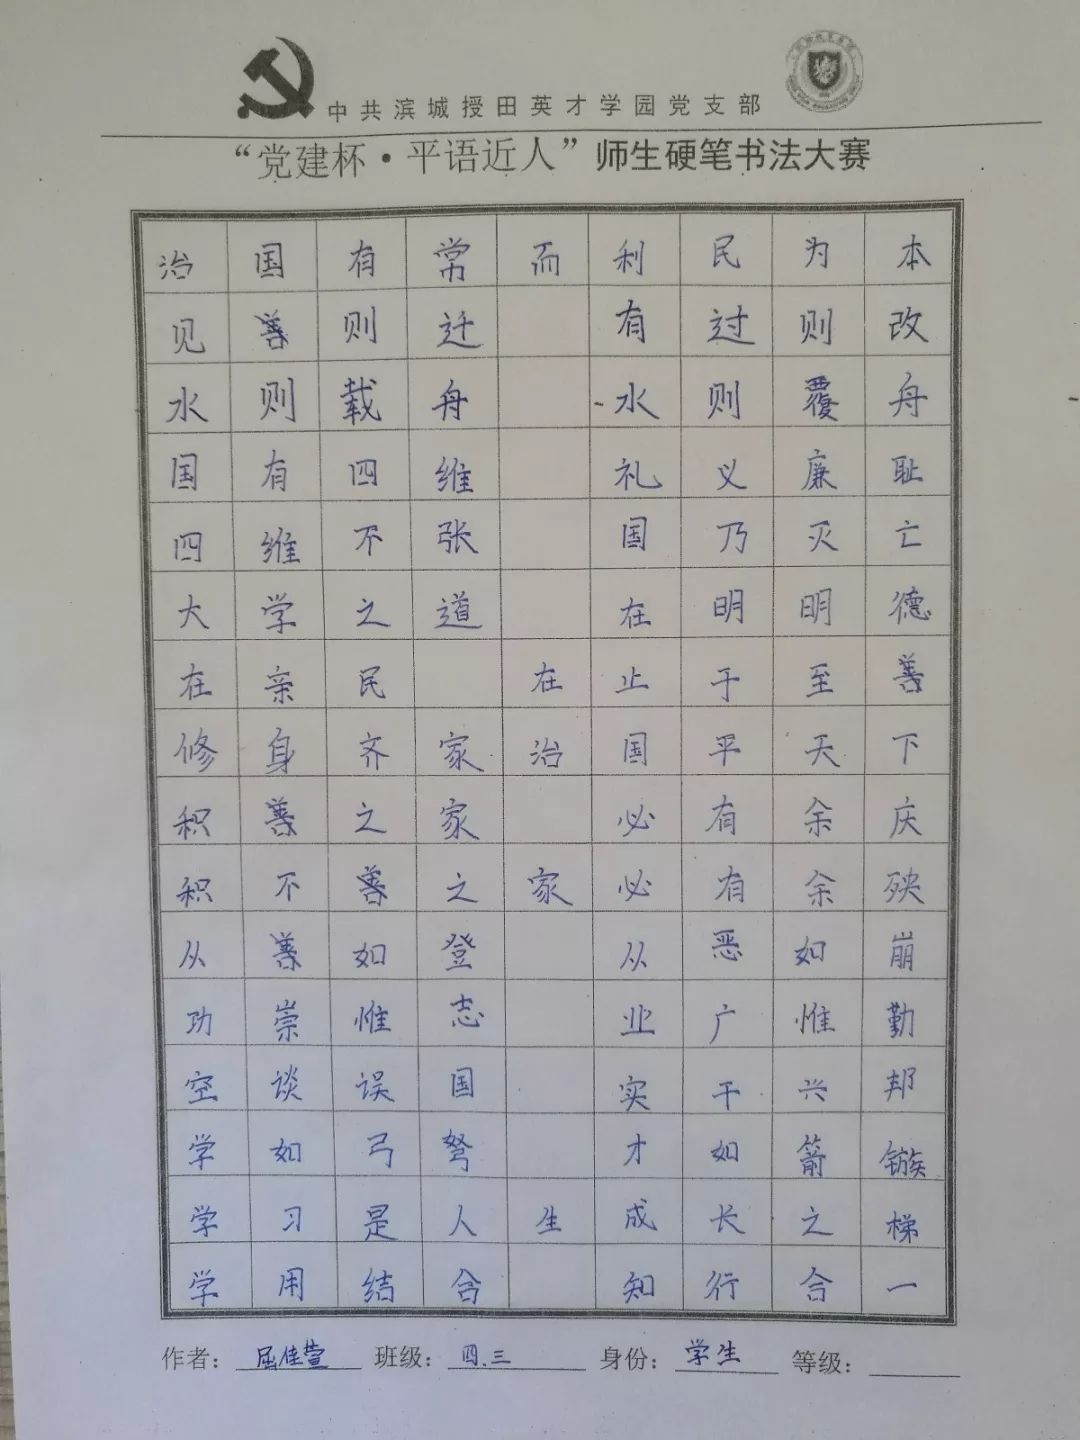 中共滨城授田英才学园党支部
“党建杯·平语近人”师生硬笔书法大赛
治国有常而利民为本
见善则迁 有过则改
水则载舟 水则覆舟
国有四维 礼义廉耻
四维不张 国乃灭亡
大学之道 在明明德
在亲民 在止于至善
修身齐家治国平天下
积善之家 必有余庆
积不善之家必有余殃
从善如登 从恶如崩
功崇惟志 业广惟勤
空谈误国 实干兴邦
学如弓弩 才如箭镞
学习是人生成长之梯
学用结合 知行合一
作者：屈佳萱 班级：四.三 身份：学生 等级：